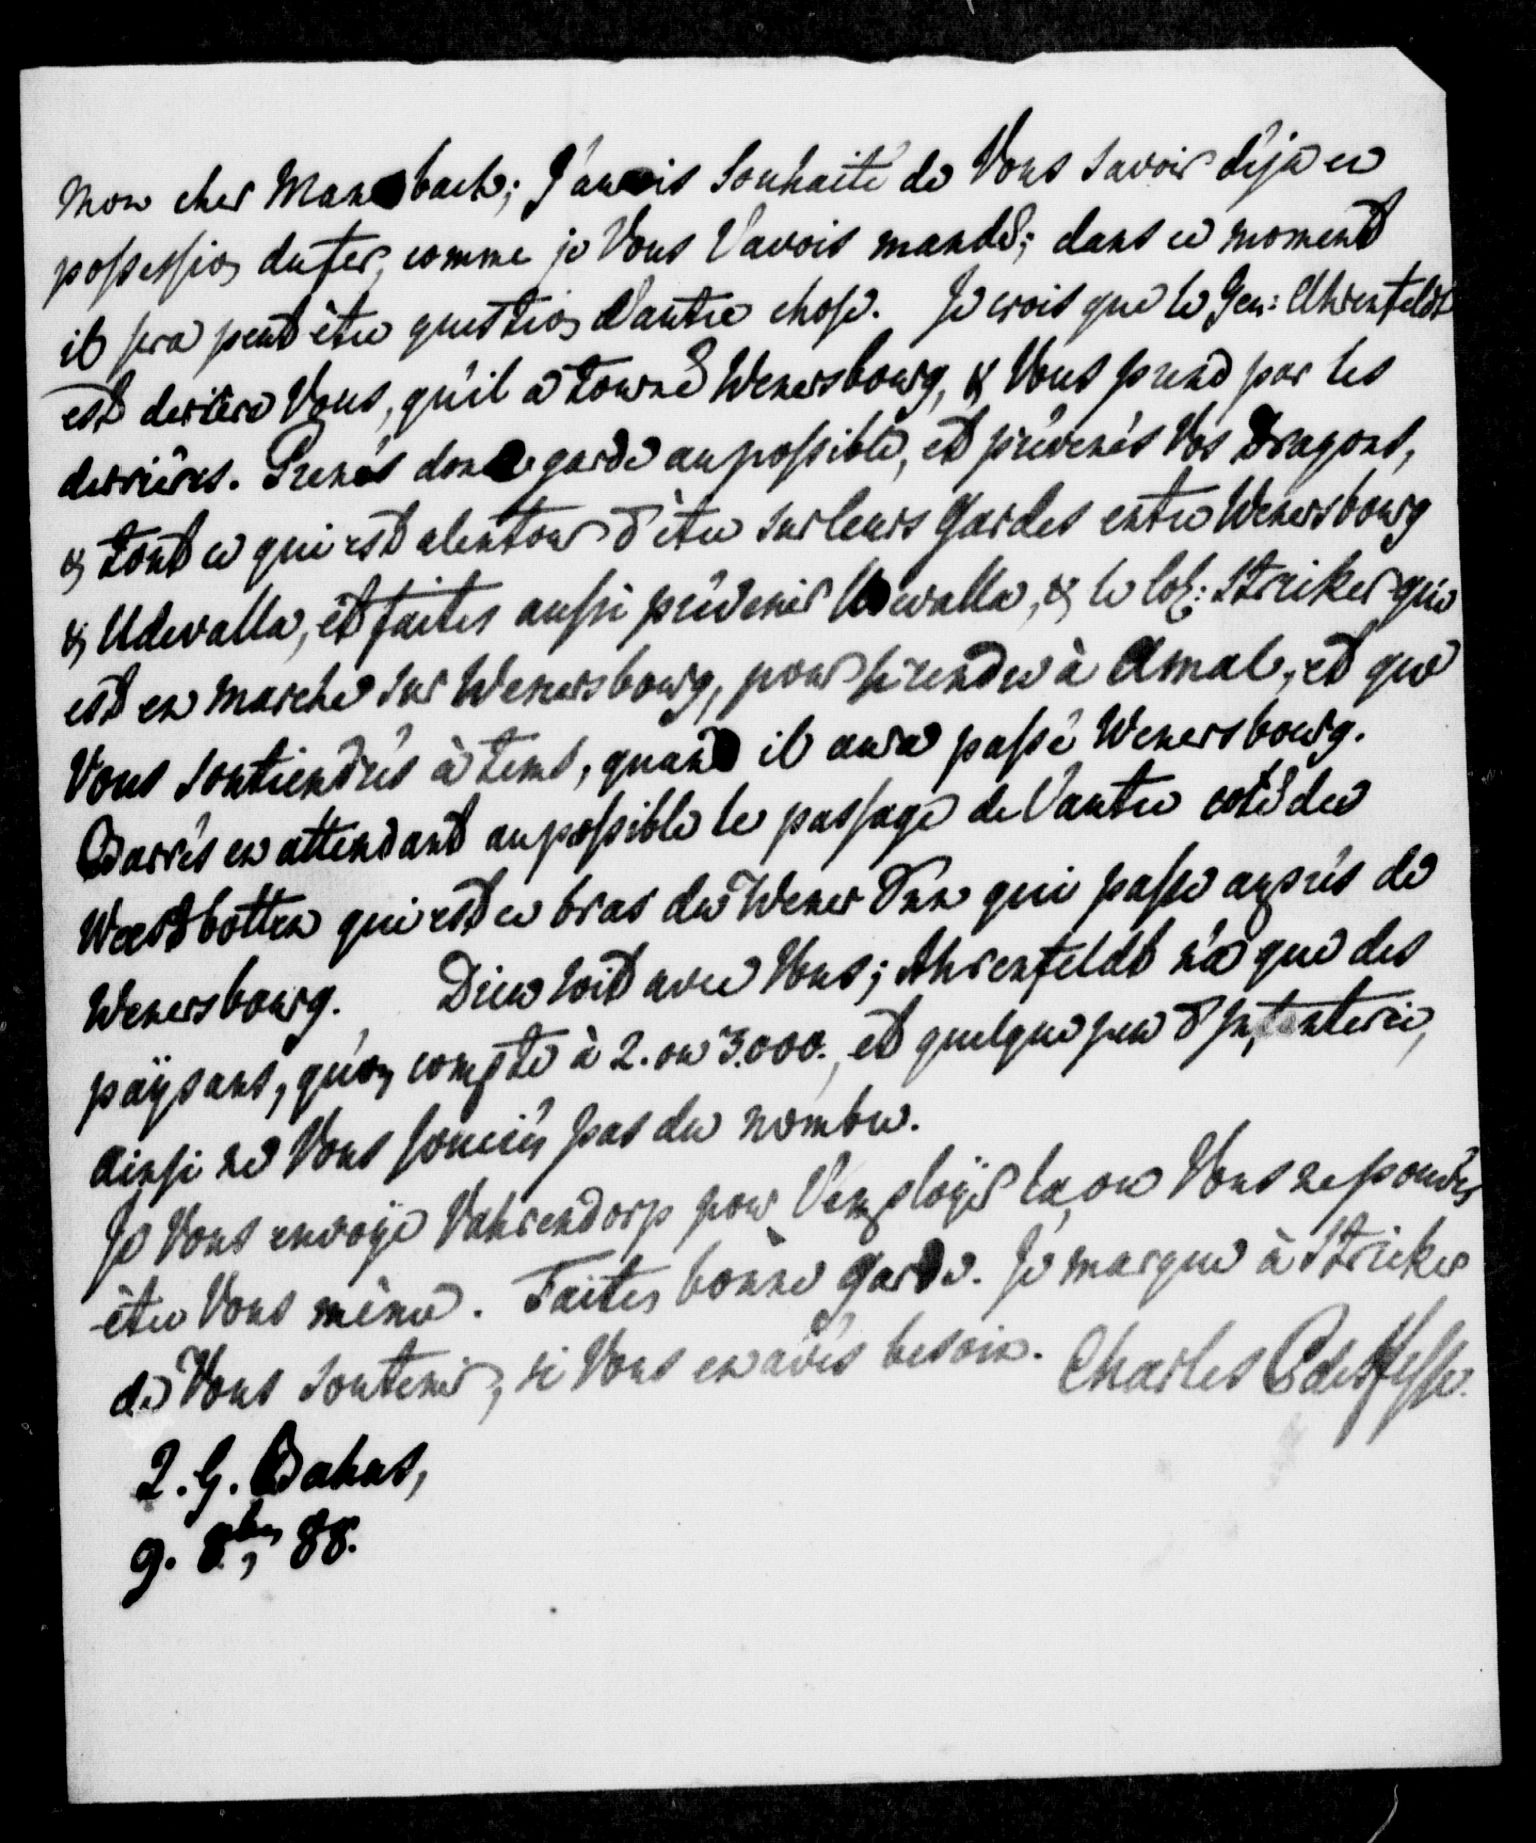 Mon cher Mansbach; J'aurois souhaité de Vous savoir déja en
possession du fer, comme je Vous l'avois mandé; dans ce moment
il sera peut être question d'autre chose. Je crois que le Gen: Ahrenfeldt
est deriére Vous, qu'il a tourné Wenersbourg, & Vous prend par les
derriéres. Prenés donc garde au possible, et prévenés Vos Dragons,
& tout ce qui est alentour d'être sur leurs gardes entre Wenersbourg
& Udevalla, et faites aussi prévenir Udewalla, & le Col: Striker qui
est en marche sur Wenersbourg, pour se rendre à Amal, et que
Vous soutiendrés à tems, quand il aura passé Wenersbourg.
Barrés en attendant au possible le passage de l'autre coté du
Wæstbotten qui est ce bras du Wener See qui passe auprés de
Wenersbourg. Dieu soit avec Vous; Ahrenfeldt n'a que des
païsans, qu'on compte à 2. ou 3.000., et quelque peu d'Infanterie,
ainsi ne Vous souciés pas du nombre.
Je Vous envoÿe Vahrendorp pour l'emploÿer la, ou Vous ne pouvés
être Vous même. Faites bonne garde. Je marque à Stricker
de Vous soutenir, si Vous en avés besoin. Charles P de Hesse.
Q. G. Bahus,
9. 8br, 88.